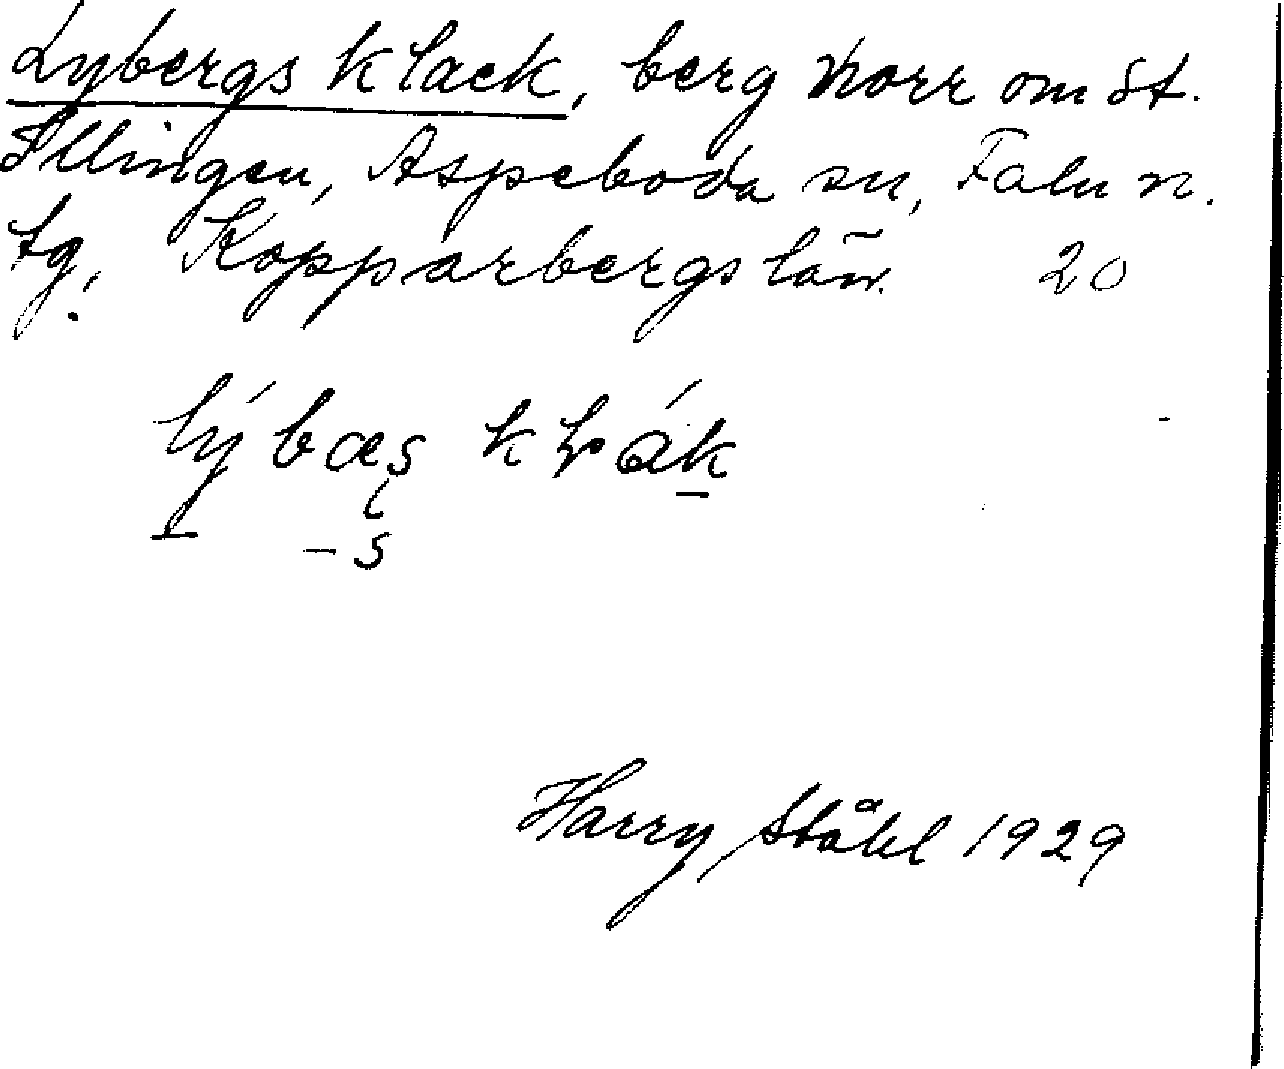 Lybergs klack, berg norr om St.
Illingen, Aspeboda sn, Falu n.
tg, Kopparbergs län. 20
lýbæs k ák
– s
Harry Ståhl 1929